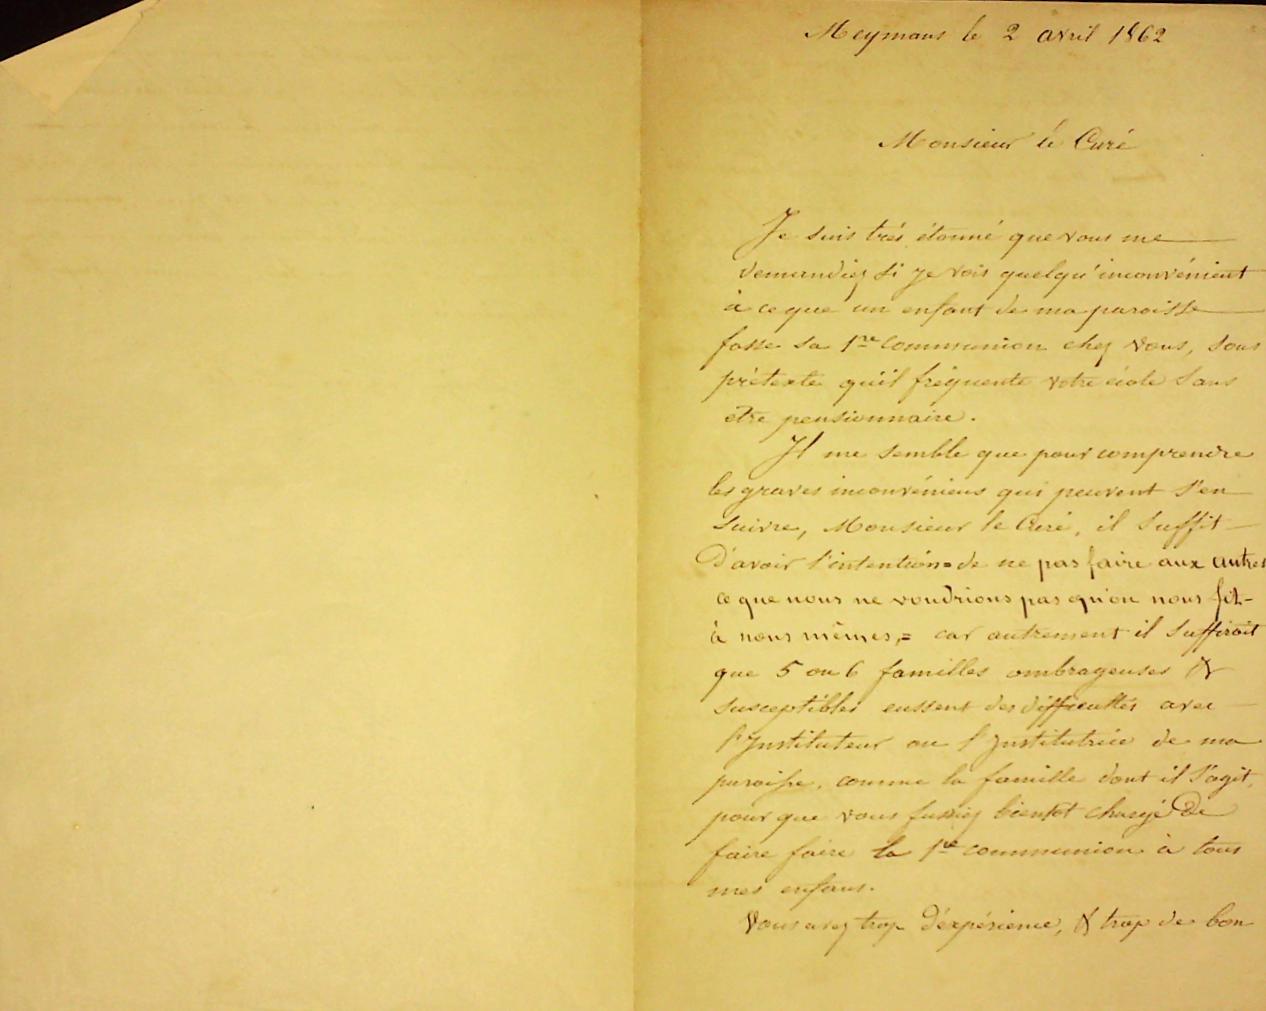 Meymans le 2 avril 1862
Monsieur le Curé
Je suis trés étonné que vous me
demandiez si je vois quelqu'inconvénient
à ce que un enfant de ma paroisse
fasse sa 1re communion chez vous, sous
prétexte qu'il fréquente votre école sans
être pensionnaire.
Il me semble que pour comprendre
les graves inconvéniens qui peuvent s'en
suivre, Monsieur le Curé, il suffit
d'avoir l'intention = de ne pas faire aux autres
ce que nous ne voudrions pas qu'on nous fit
à nous mêmes, = car autrement il suffirait
que 5 ou 6 familles ombrageuses &
susceptibles eussent des difficultés avec
l'Instituteur ou l'Institutrice de ma
paroisse, comme la famille dont il s'agit,
pour que vous fussiez bientot chargé de
faire faire la 1re communion à tous
mes enfans.
Vous avez trop d'expérience, & trop de bon